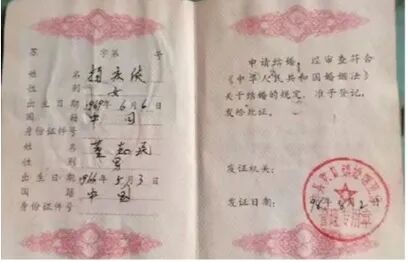 苏 字第 号
姓名
性别 女
出生日期 1969年6月6日
国籍 中国
身份证件号
姓名 董志兵
性别 男
出生日期 1966年5月3日
国籍 中国
身份证件号
申请结婚，经审查符合
《中华人民共和国婚姻法》
关于结婚的规定，准予登记，
发给此证。
发证机关：
发证日期：
管理专用章